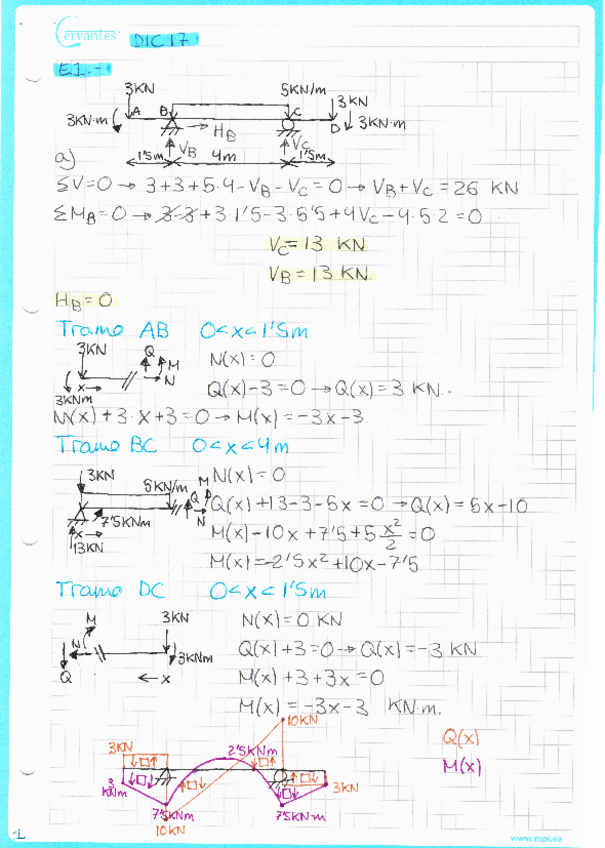 Cervantes® DIC 17
E1.-
3KN 5KN/m 3KN
3KN·m A B C D 3KN·m
HB
VB VC
1'5m 4m 1'5m
a)
ΣV=0 → 3+3+5·4-VB-VC=0 → VB+VC=26 KN
ΣMB=0 → 3-3+3·1'5-3·5'5+4VC-4·5·2=0
VC=13 KN
VB=13 KN
HB=0
Tramo AB 0<x<1'5m
3KN Q M N(x)=0
x N Q(x)-3=0 → Q(x)=3 KN.
3KNm
M(x)+3·x+3=0 → M(x)=-3x-3
Tramo BC 0<x<4m
3KN N(x)=0
5KN/m M Q N Q(x)+13-3-5x=0 → Q(x)=5x-10
7'5KNm M(x)-10x+7'5+5x²/2=0
x
13KN M(x)=-2'5x²+10x-7'5
Tramo DC 0<x<1'5m
M 3KN N(x)=0 KN
N 3KNm Q(x)+3=0 → Q(x)=-3 KN
Q x M(x)+3+3x=0
M(x)=-3x-3 KN·m.
10KN
3KN 2'5KNm Q(x)
M(x)
3KNm 3KN
7'5KNm 7'5KNm
10KN
1
www.mpi.es